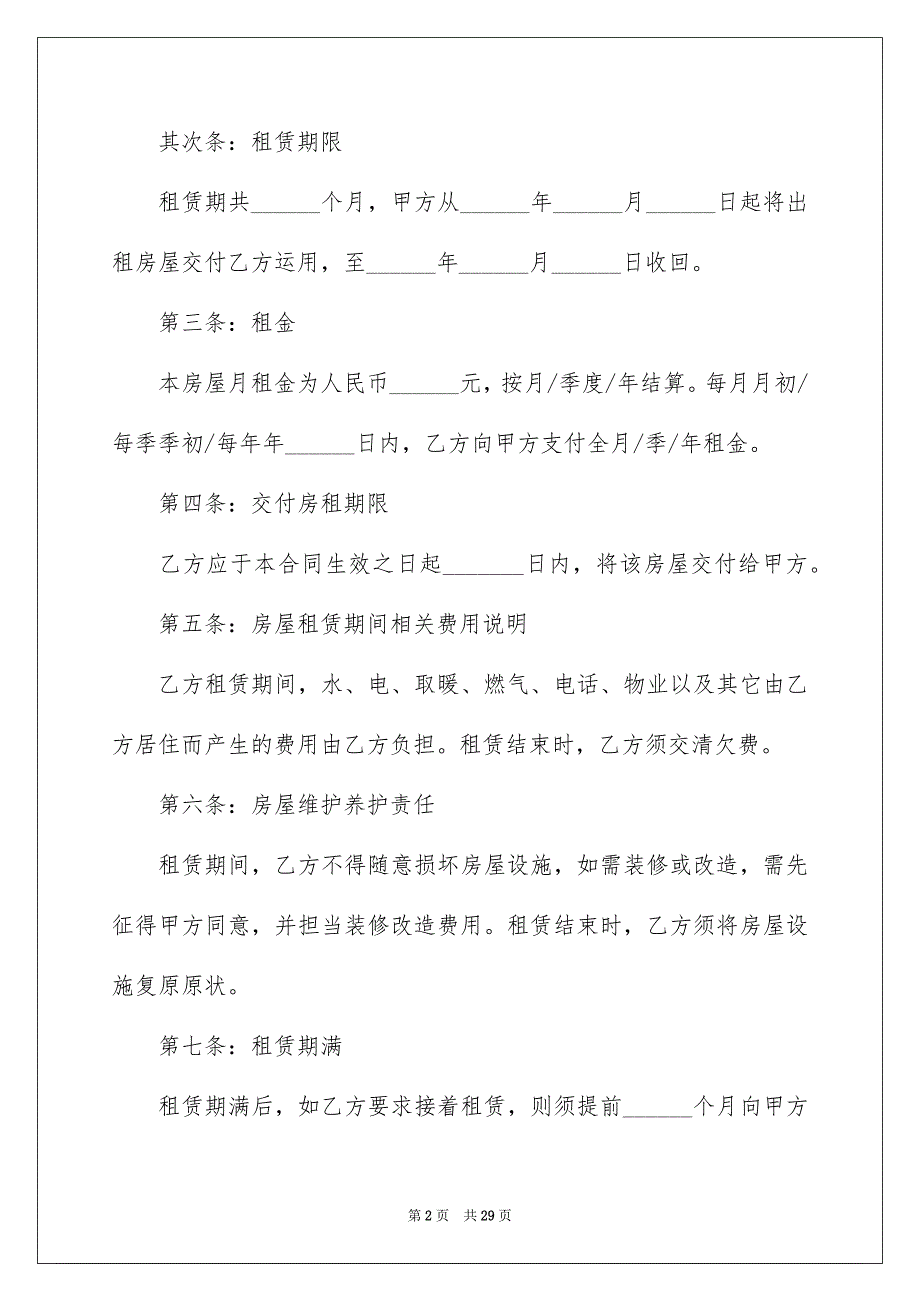 其次条：租赁期限
租赁期共______个月，甲方从______年______月______日起将出
租房屋交付乙方运用，至______年______月______日收回。
第三条：租金
本房屋月租金为人民币______元，按月/季度/年结算。每月月初/
每季季初/每年年______日内，乙方向甲方支付全月/季/年租金。
第四条：交付房租期限
乙方应于本合同生效之日起_______日内，将该房屋交付给甲方。
第五条：房屋租赁期间相关费用说明
乙方租赁期间，水、电、取暖、燃气、电话、物业以及其它由乙
方居住而产生的费用由乙方负担。租赁结束时，乙方须交清欠费。
第六条：房屋维护养护责任
租赁期间，乙方不得随意损坏房屋设施，如需装修或改造，需先
征得甲方同意，并担当装修改造费用。租赁结束时，乙方须将房屋设
施复原原状。
第七条：租赁期满
租赁期满后，如乙方要求接着租赁，则须提前______个月向甲方
第 2 页 共 29 页